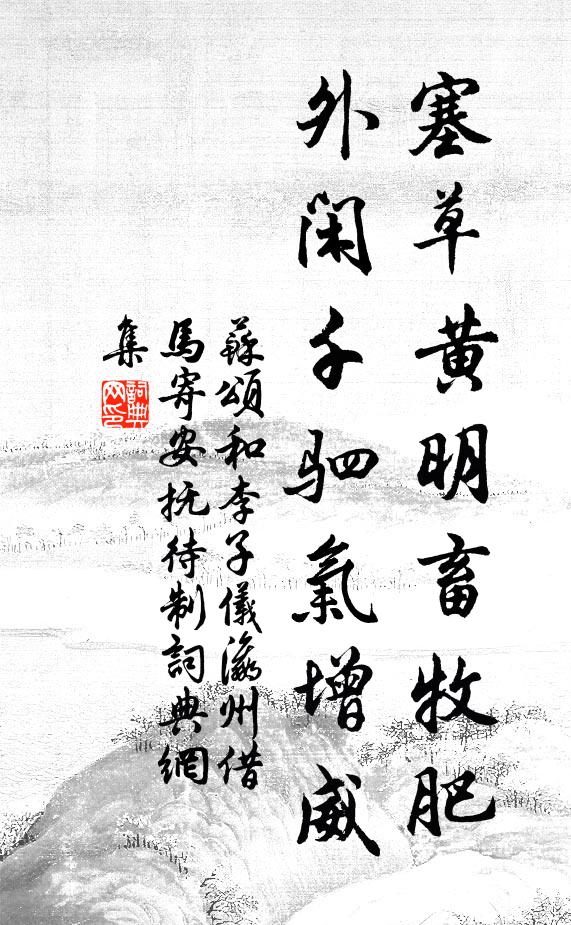 塞草黄明畜牧肥
外閑千駟氣增威
蘇頌和李子儀瀛州借
馬寄安抚待制詞典網
集
詞典
网印